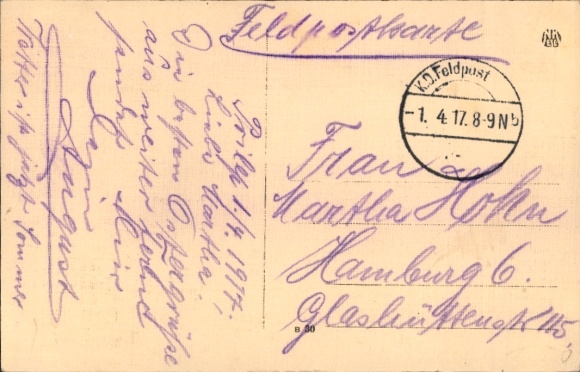 Feldpostkarte
K.D. Feldpost
-1. 4. 17. 8-9 N b
Prilep 1/4. 1917.
Liebe Martha!
Die besten Ostergrüße
aus weiter Ferne
sendet Dir
Dein
August
ist jetzt Sommer
Frau
Martha Hohn
Hamburg 6.
Glashüttenstr. 115
B 30